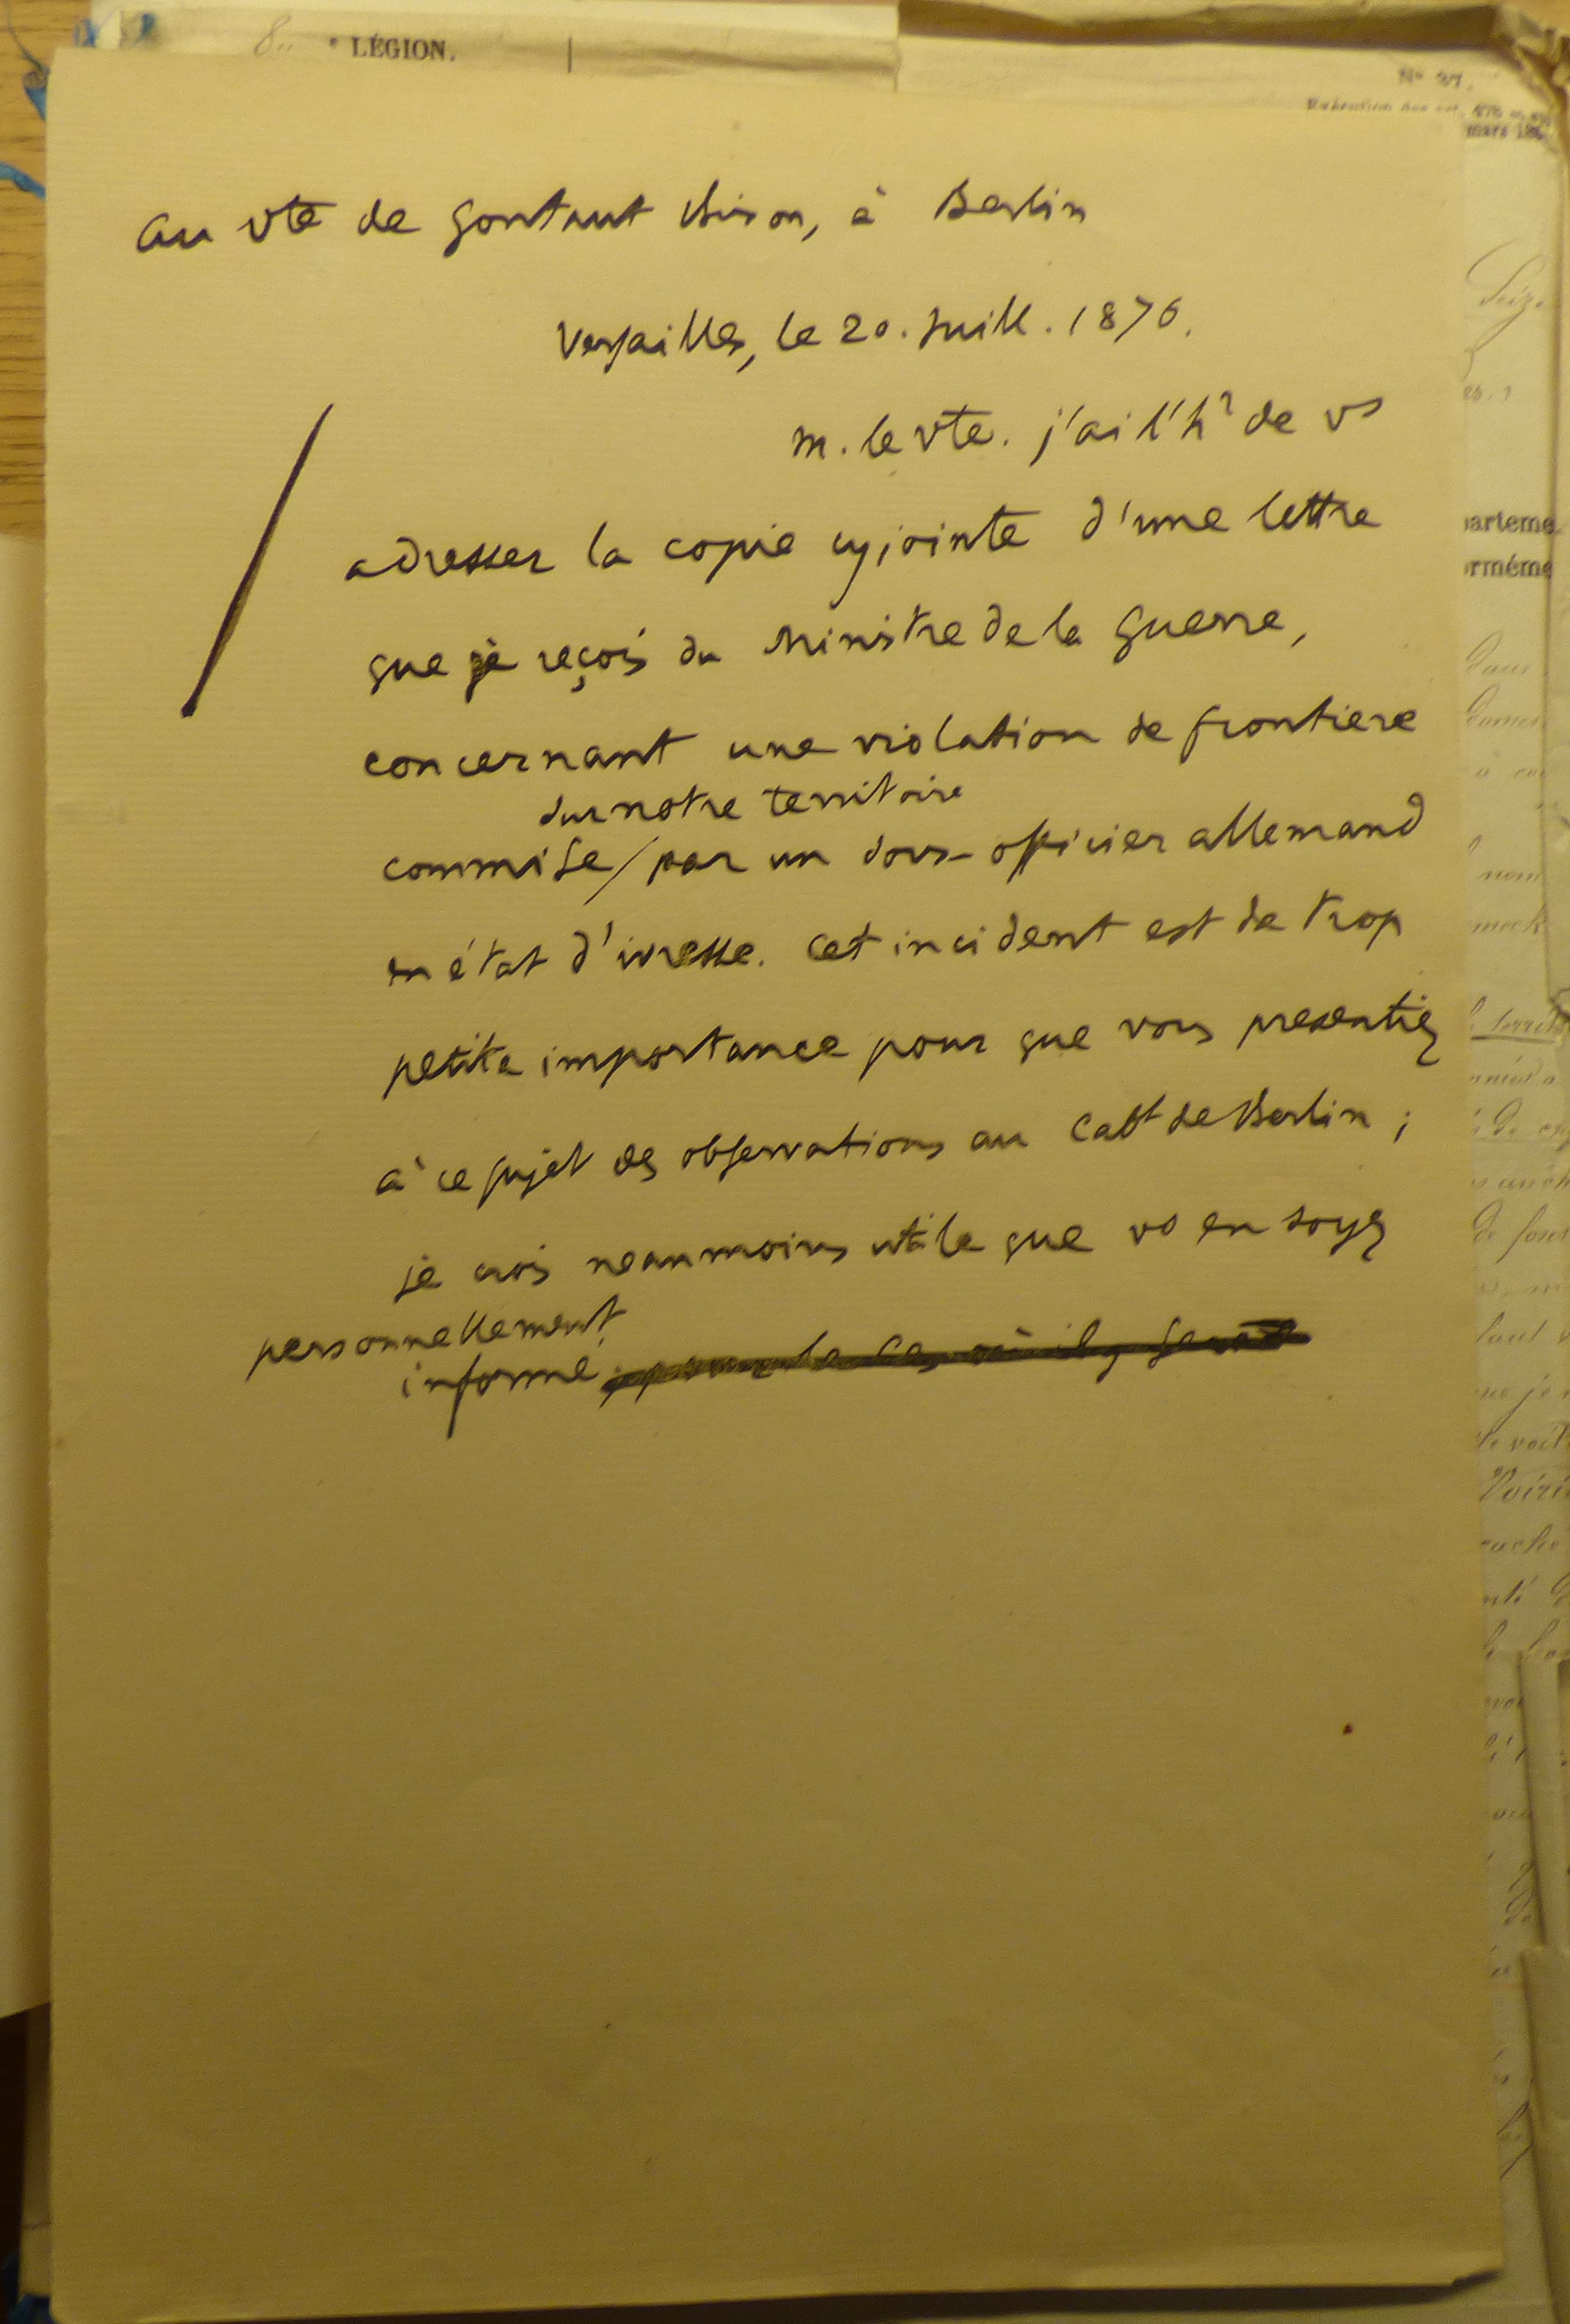 8e LÉGION.
No 37.
mars 18
au vte de Gontaut Biron, à Berlin
Versailles, le 20. Juill. 1876.
M. le Vte. j'ai l'hr de vs
adresser la copie cy jointe d'une lettre
que je reçois du Ministre de la Guerre,
concernant une violation de frontiere
sur notre territoire
commise / par un sous-officier allemand
en état d'ivresse. Cet incident est de trop
petite importance pour que vous presentiez
à ce sujet des observations au Cabt de Berlin ;
je crois neanmoins utile que vs en soyez
personnellement
informé. pour le cas où il y serait
parteme
rméme